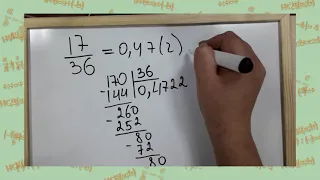 17/36 = 0,47(2)
170 | 36
- 144 | 0,4722
260
- 252
80
- 72
80